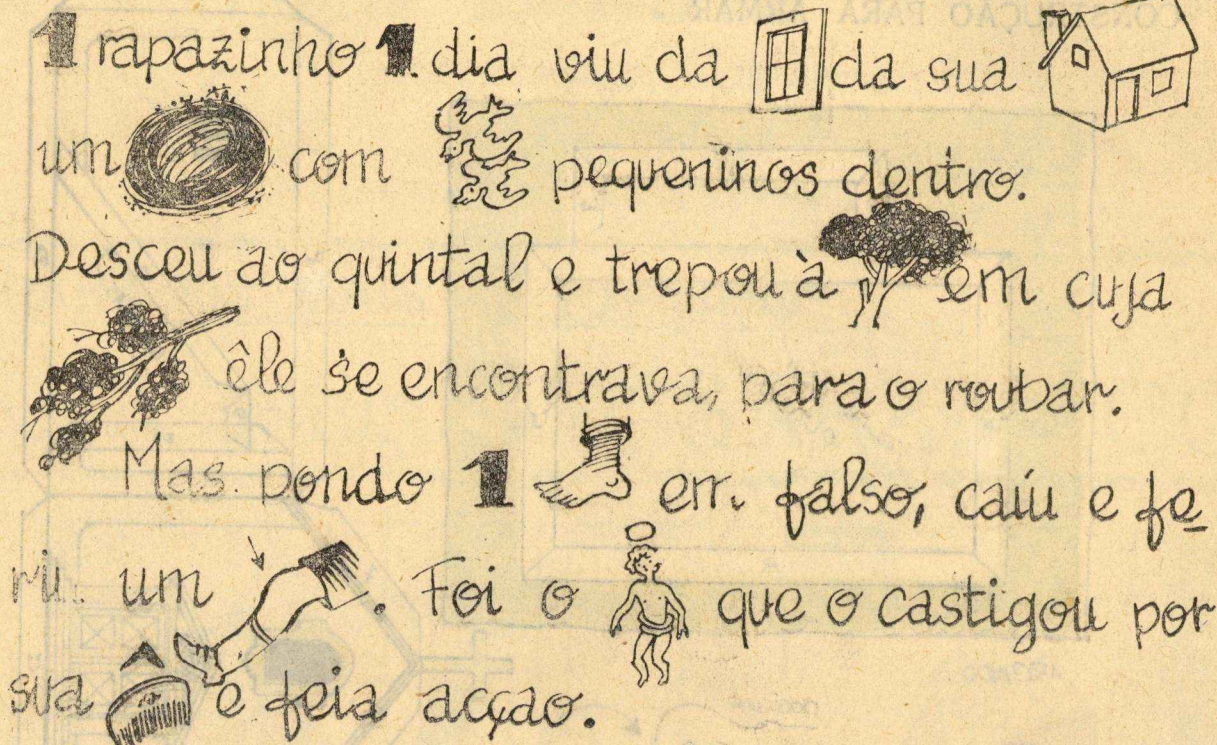 CONSTRUÇÃO PARA ARMAR
1 rapazinho 1 dia viu da da sua
um com pequeninos dentro.
Desceu ao quintal e trepou à em cuja
êle se encontrava, para o roubar.
Mas pondo 1 em falso, caiu e fe
riu um . Foi o que o castigou por
sua e feia acção.